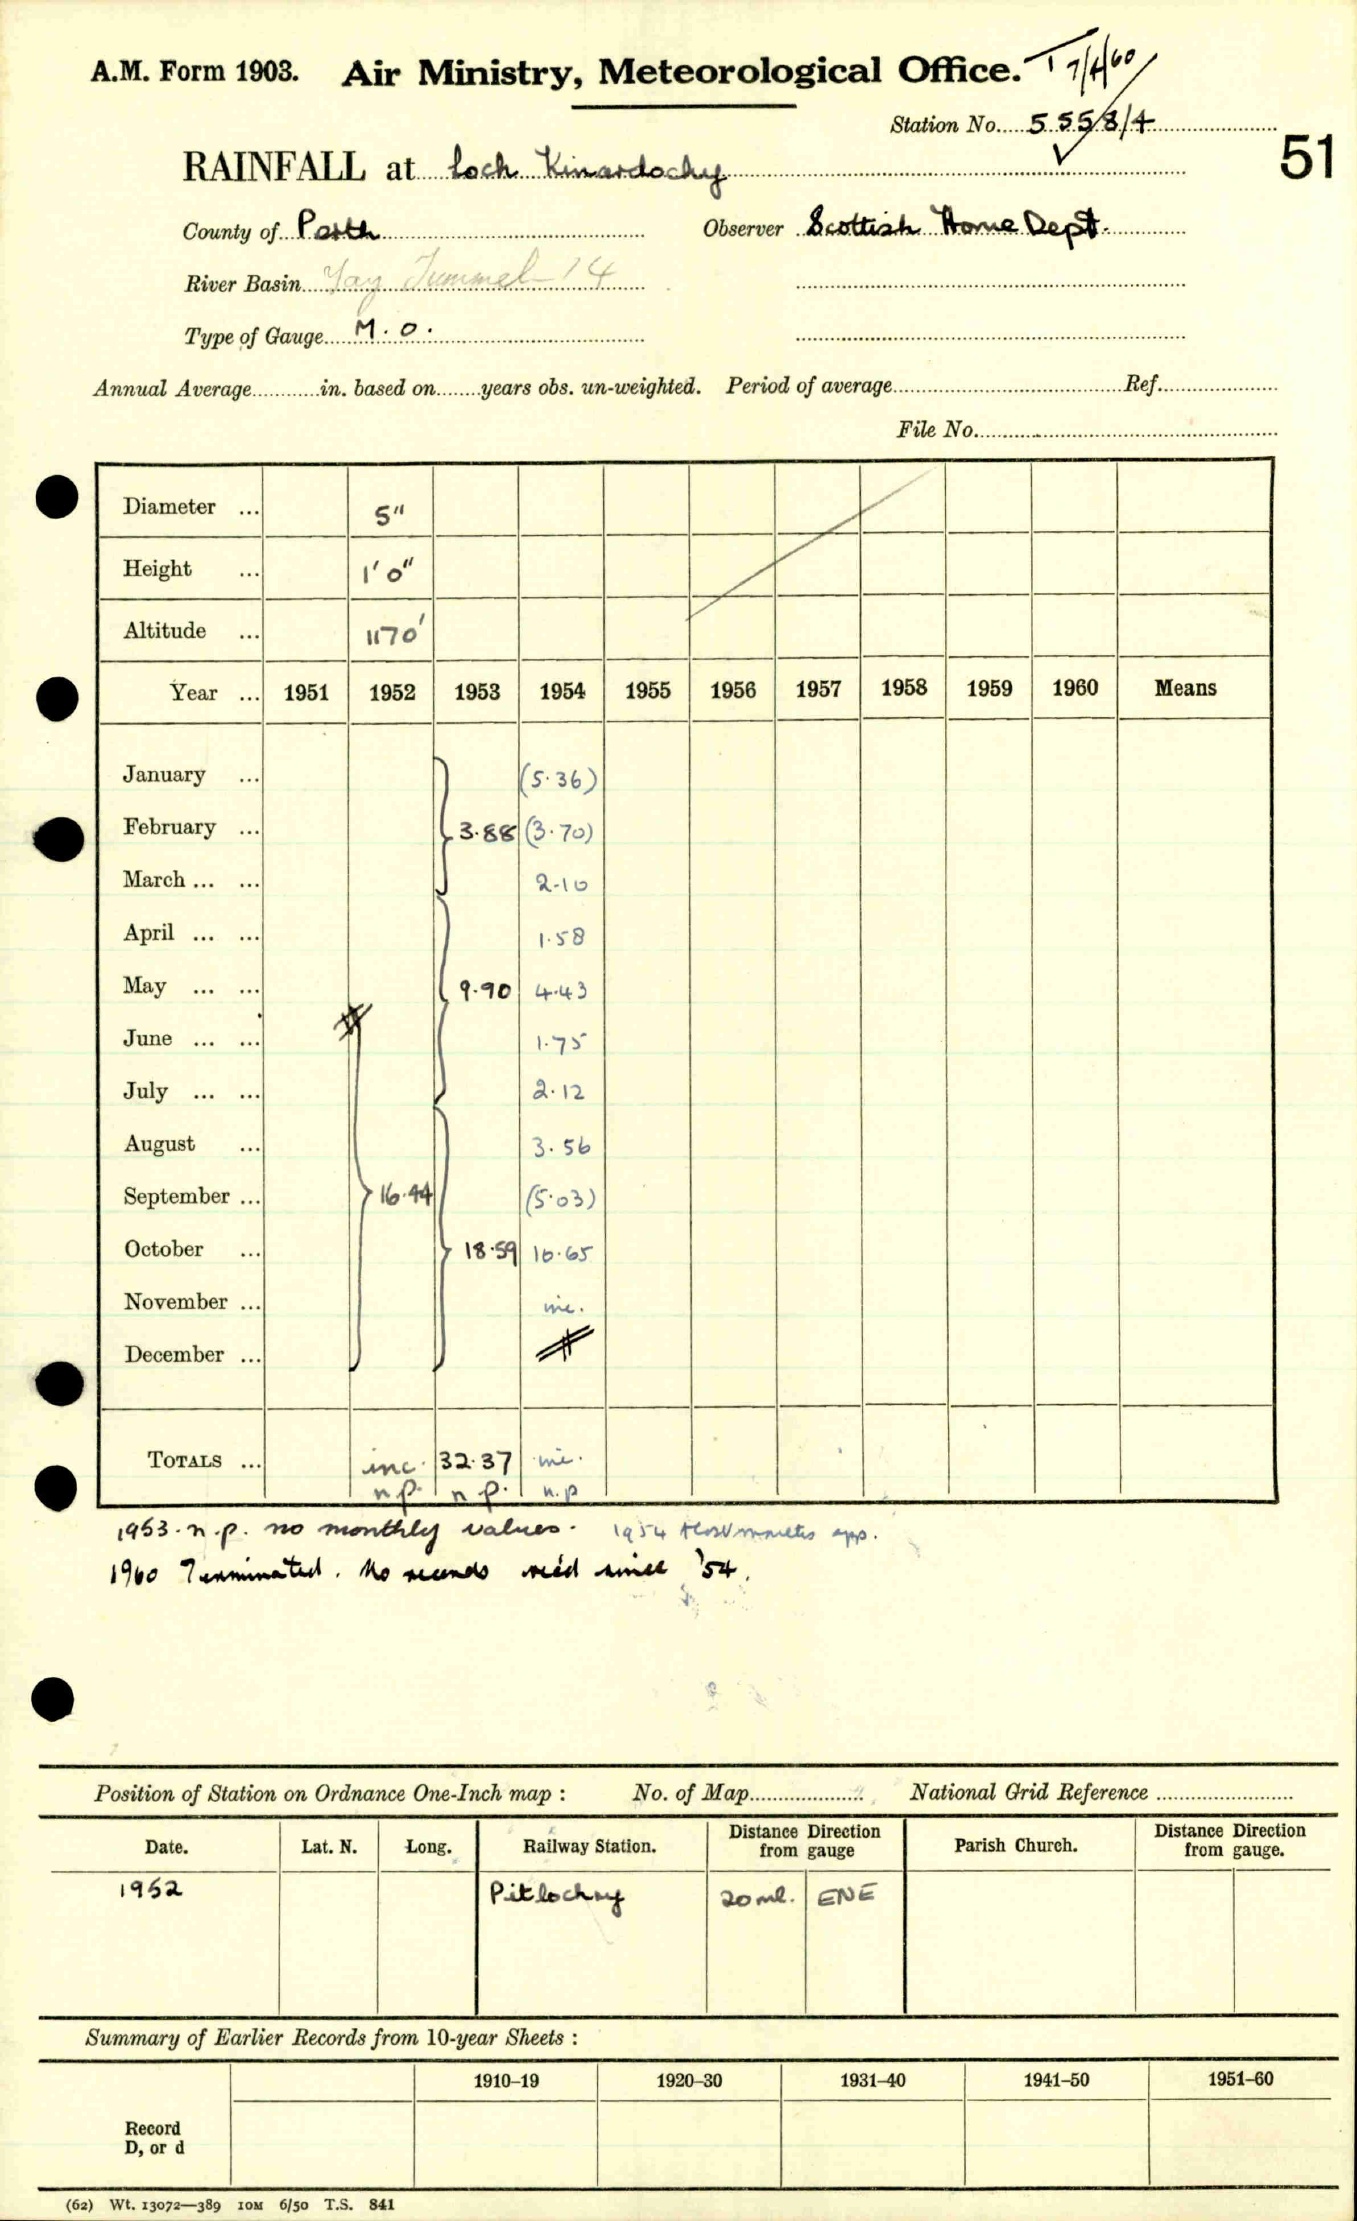 A.M. Form 1903. Air Ministry, Meteorological Office. T 7/4/60
Station No. 5558/4
51
RAINFALL at Loch Kinardochy
County of Perth Observer Scottish Home Dept.
River Basin Tay Tummel 14
Type of Gauge M.O.
Annual Average in. based on years obs. un-weighted. Period of average Ref.
File No.
Diameter ... 5"
Height ... 1' 0"
Altitude ... 1170'
Year ... 1951 1952 1953 1954 1955 1956 1957 1958 1959 1960 Means
January ... (5.36)
February ... 3.88 (3.70)
March ... ... 2.10
April ... ... 1.58
May ... ... 9.90 4.43
June ... ... 1.75
July ... ... 2.12
August ... 3.56
September ... 16.44 (5.03)
October ... 18.59 10.65
November ... inc.
December ...
TOTALS ... inc. 32.37 inc.
n.p. n.p. n.p
1953. n.p. no monthly values. 1954 app.
1960 Terminated. No records rec'd since '54.
Position of Station on Ordnance One-Inch map : No. of Map National Grid Reference
Date. Lat. N. Long. Railway Station. Distance from gauge Direction Parish Church. Distance from gauge. Direction
1952 Pitlochry 20ml. ENE
Summary of Earlier Records from 10-year Sheets :
1910–19 1920–30 1931–40 1941–50 1951–60
Record
D, or d
(62) Wt. 13072—389 10M 6/50 T.S. 841